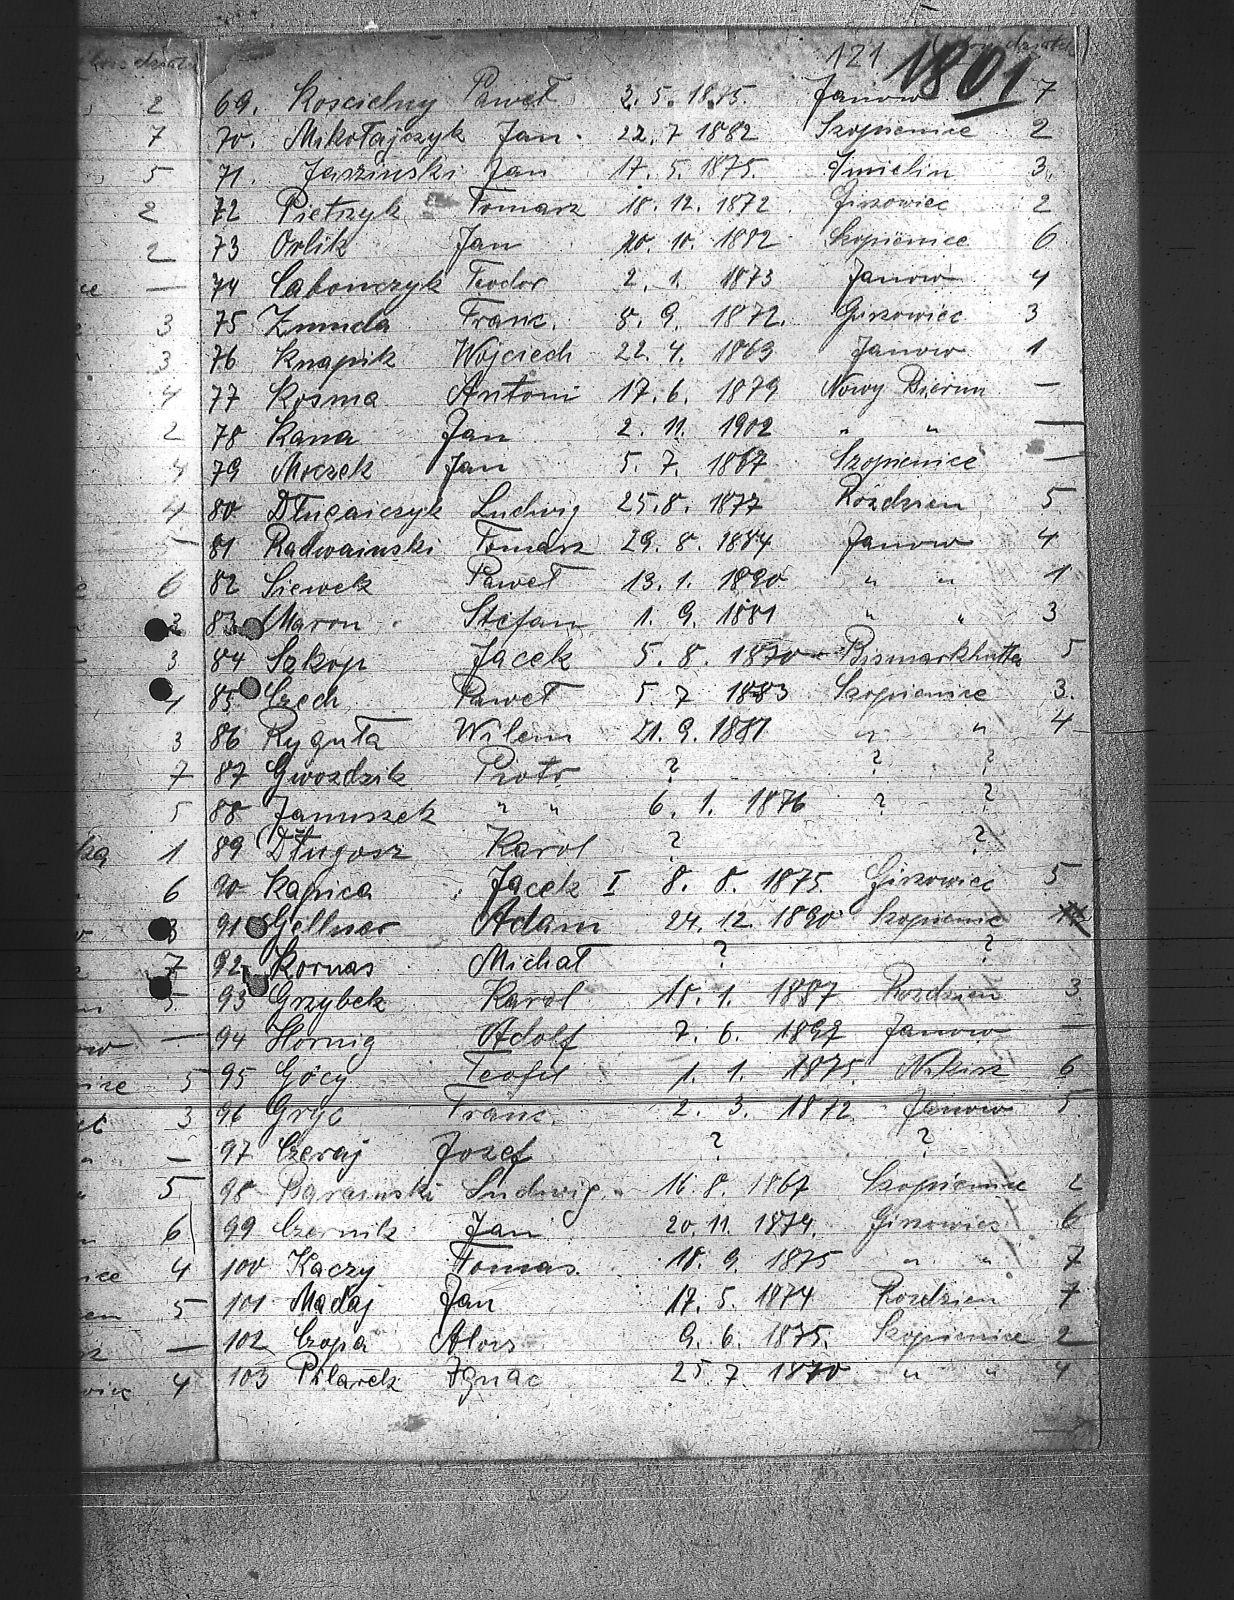 121 1801
69. Koscielny Paweł 2. 5. 1885. Janow 7
70. Mikołajczyk Jan. 22. 7 1882 Szopienice 2
71. Jasziński Jan 17. 5. 1875. Imielin 3.
72 Pietrzyk Tomasz 18. 12. 1872. Giszowiec 2
73 Orlik Jan 20. 10. 1882 Szopienice 6
74 Labonczyk Teodor 2. 1. 1873 Janow 4
75 Zmuda Franc. 8. 9. 1872. Giszowiec 3
76 Knapik Wojciech 22. 4. 1869 Janow 1
77 Kosma Antoni 17. 6. 1879 Nowy Bierun —
78 Kana Jan 2. 11. 1902 " " —
79 Moczek Jan 5. 7. 1867 Szopienice —
80 Długaiczyk Ludwig 25. 8. 1877 Rozdzien 5
81 Radwainski Tomasz 29. 8. 1884 Janow 4
82 Siewek Paweł 13. 1. 1890 " " 1
83 Maron Stefan 1. 9. 1881 " " 3
84 Szkop Jacek 5. 8. 1870 Bismarkhutta 5
85 Czech Paweł 5. 7 1883 Szopienice 3.
86 Ryguła Wilem 21. 9. 1881 " " 4
87 Gwozdzik Piotr ? ? ?
88 Januszek " " 6. 1. 1876 ? ?
89 Długosz Karol ? ?
90 Kapica Jacek I 8. 8. 1875 Giszowiec 5
91 Gellner Adam 24. 12. 1890 Szopienic
92 Kornas Michał ? ?
93 Grzybek Karol 18. 1. 1887 Rozdzien 3
94 Hornig Adolf 7. 6. 1897 Janow —
95 Gócy Teofil 1. 1. 1875. Nikisz 6
96 Gryc Franc. 2. 3. 1872 Janow 5
97 Czeraj Jozef ? ?
98 Barainski Ludwig. 16. 8. 1867 Szopienice 2
99 Czernik Jan 20. 11. 1874. Giszowiec 6
100 Kaczy Tomas. 18. 9. 1875 " " 7
101 Madaj Jan 17. 5. 1874 Rozdzien 7
102 Czopa Alois 9. 6. 1875. Szopienice 2
103 Pilarek Ignac 25. 7. 1870 " " 4